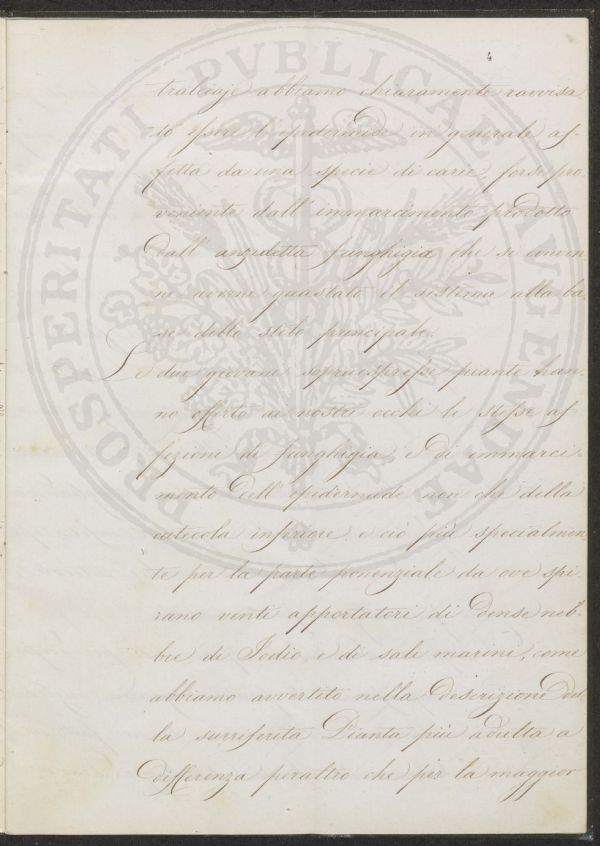 4
abbiamo chiaramente ravvisa
to essere l'epidermide in generale af
fetta da una specie di carie, forse pro
veniente dall'immarcimento prodotto
dall'anzidetta funghigia che si
guastato il sistema alla ba
se dello stelo principale.
Le due giovani sopraespresse piante han
no offerto ai nostri occhi le stesse af
fezioni di funghigia, e di immarci
mento dell'epidermide non che della
inferiore, e ciò più specialmen
te per la parte ponenziale da ove spi
rano venti apportatori di dense neb
bie, di Jodio, e di sali marini, come
abbiamo avvertito nella descrizione del
la surriferita Pianta più adulta a
differenza peraltro che per la maggior
PROSPERITATI PVBLICAE AVGENDAE